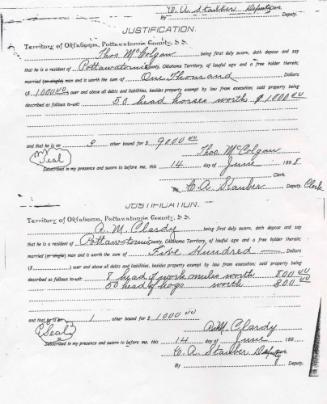 C. A. Stauber Deputy
By Deputy.
JUSTIFICATION.
Territory of Oklahoma, Pottawatomie County, S.S.
Thos McColgan being first duly sworn, doth depose and say
that he is a resident of Pottawatomie County, Oklahoma Territory, of lawful age and a free holder therein;
married (or single) man and is worth the sum of One Thousand Dollars
$1000 00 over and above all debts and liabilities, besides property exempt by law from execution; said property being
described as follows to-wit: 50 head horses worth $1000 00
and that he is on 2 other bond for $9000 00
Seal Thos McColgan
Subscribed in my presence and sworn to before me, this 14 day of June 189
Clerk.
C. A. Stauber Deputy Clerk
JUSTIFICATION.
Territory of Oklahoma, Pottawatomie County, S.S.
A. M. Clardy being first duly sworn, doth depose and say
that he is a resident of Pottawatomie County, Oklahoma Territory, of lawful age and a free holder therein;
married (or single) man and is worth the sum of Five Hundred Dollars
$ over and above all debts and liabilities, besides property exempt by law from execution; said property being
described as follows to-wit: 8 head of work mules worth 800 00
50 head of hogs worth 200 00
and that he is on 1 other bond for $1000 00
Seal A. M. Clardy
Subscribed in my presence and sworn to before me, this 14 day of June 189
C. A. Stauber
By Deputy.